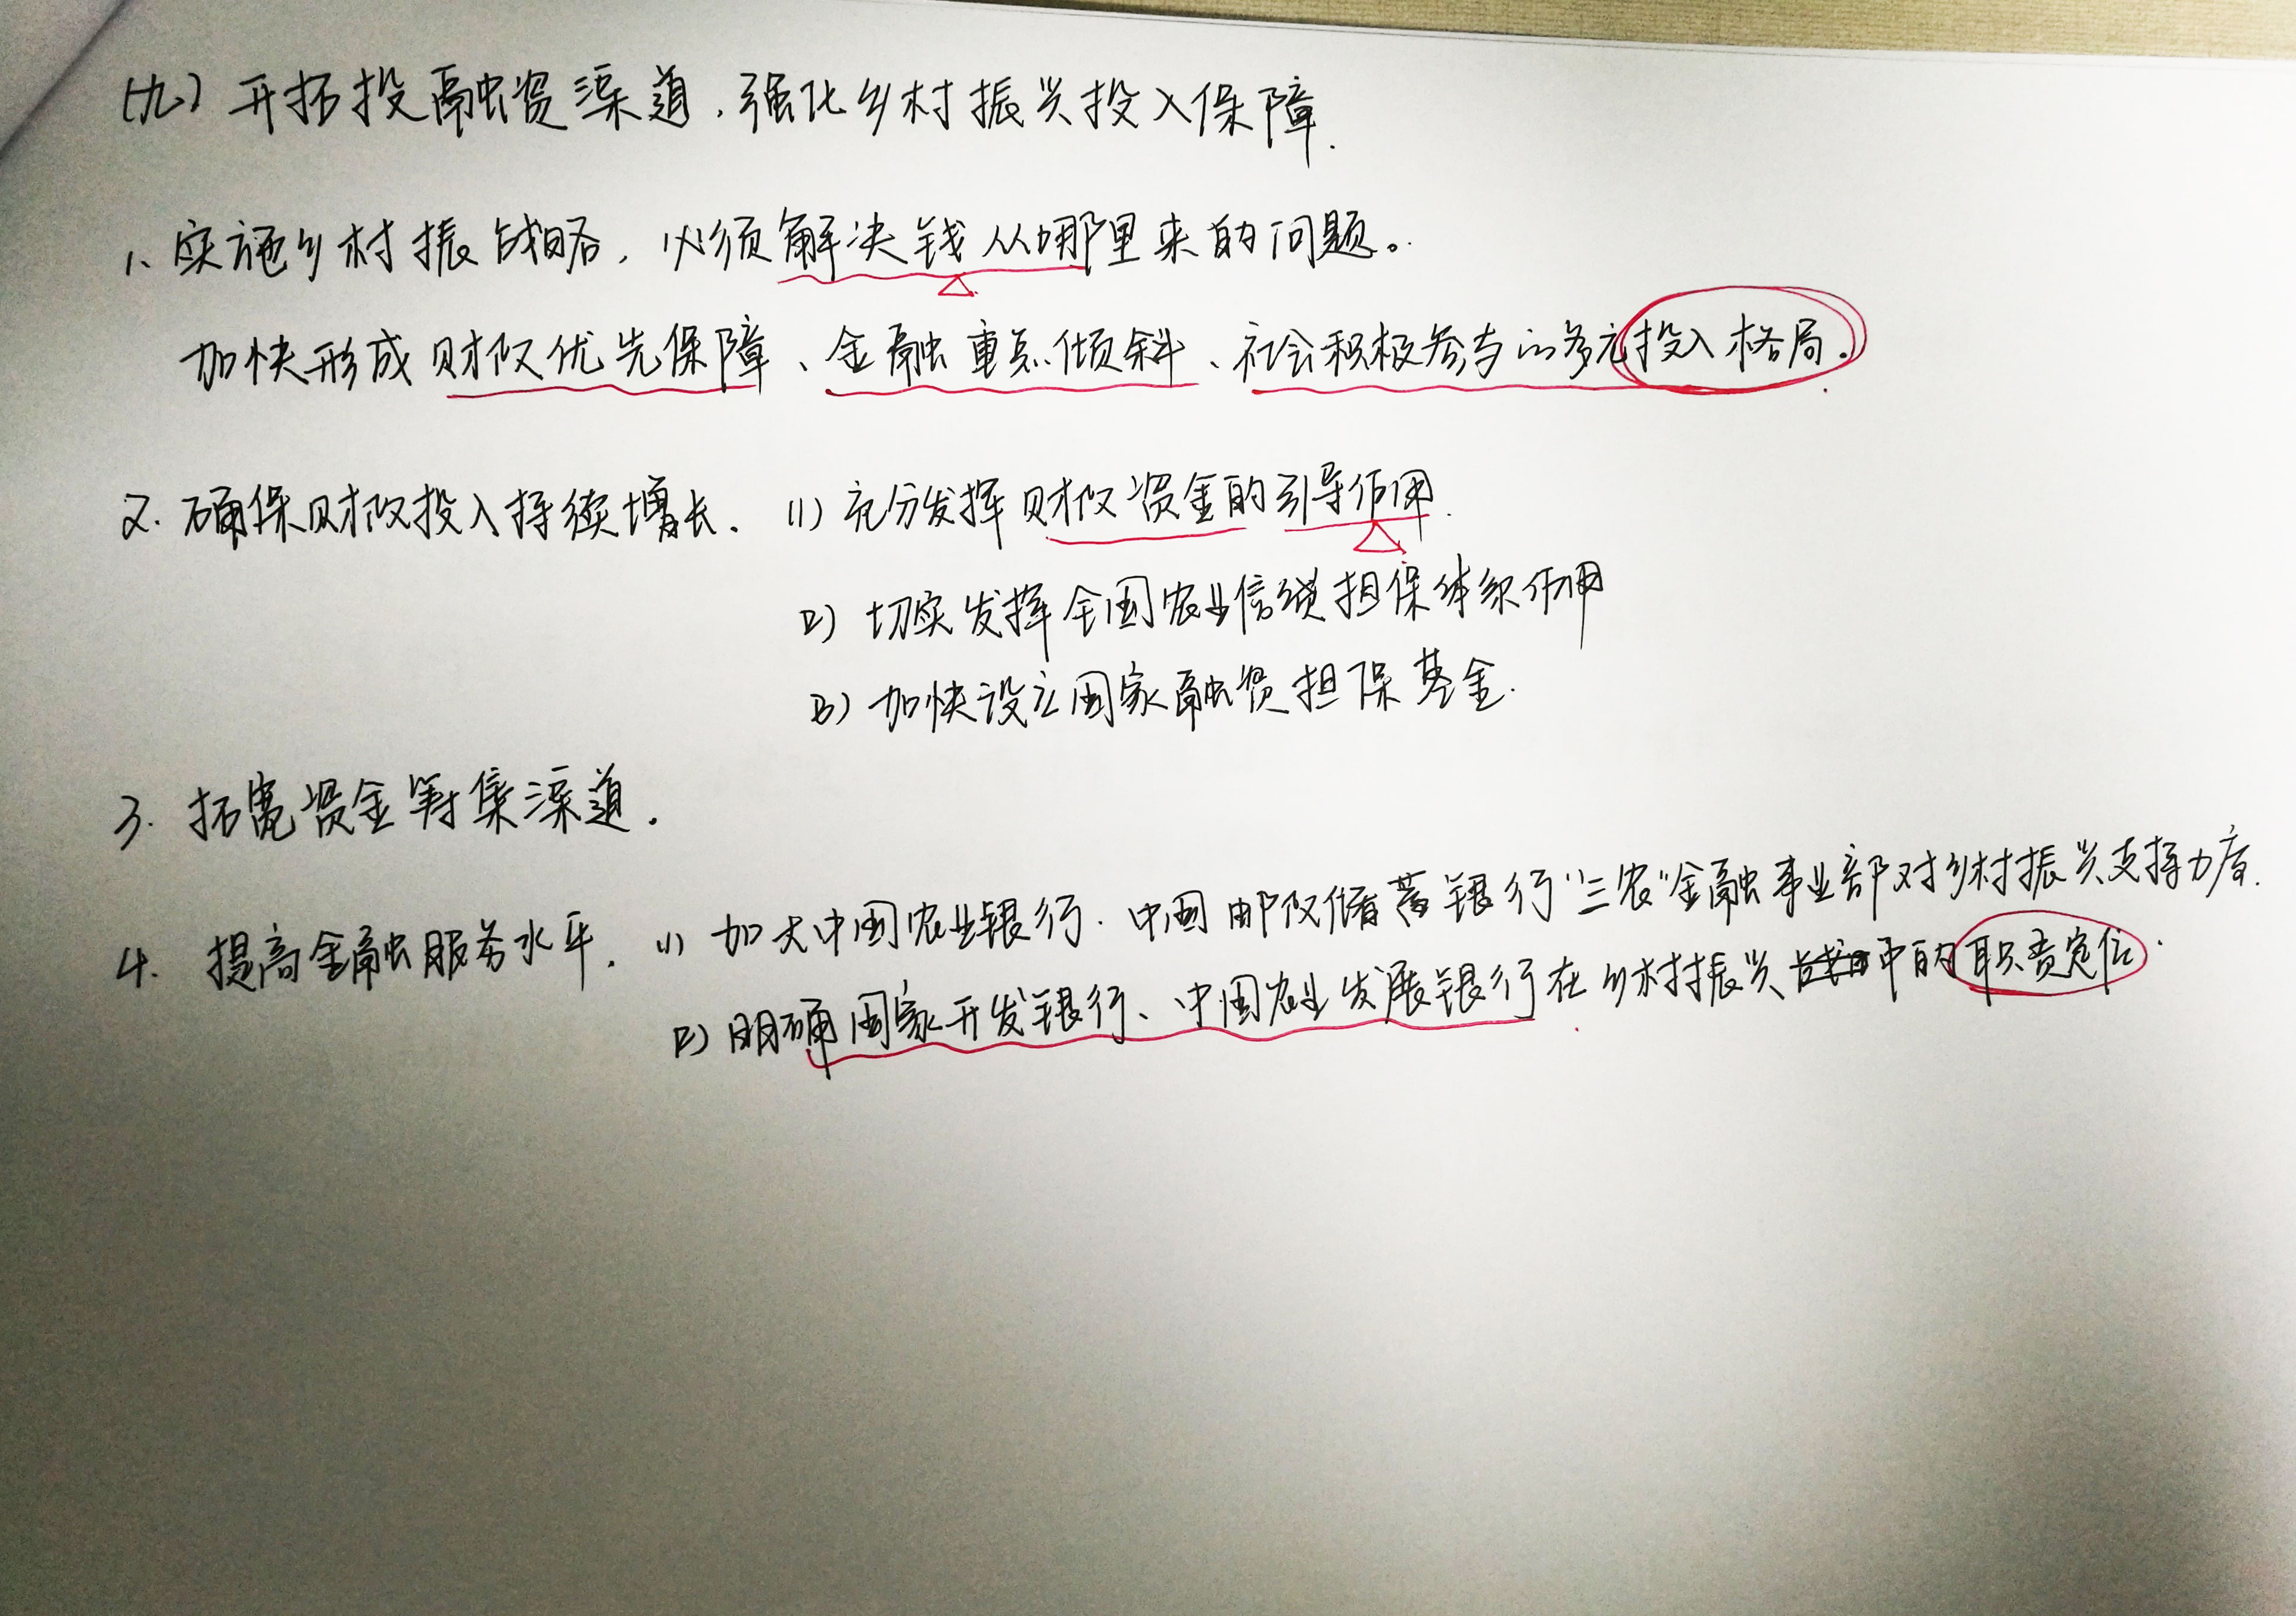 (九) 开拓投融资渠道，强化乡村振兴投入保障.
1、实施乡村振战略，必须解决钱从哪里来的问题。
加快形成财政优先保障、金融重点倾斜、社会积极参与的多元投入格局.
2. 确保财政投入持续增长. (1) 充分发挥财政资金的引导作用.
(2) 切实发挥全国农业信贷担保体系作用
(3) 加快设立国家融资担保基金.
3. 拓宽资金筹集渠道.
4. 提高金融服务水平. (1) 加大中国农业银行.中国邮政储蓄银行"三农"金融事业部对乡村振兴支持力度.
(2) 明确国家开发银行、中国农业发展银行在乡村振兴中的职责定位.